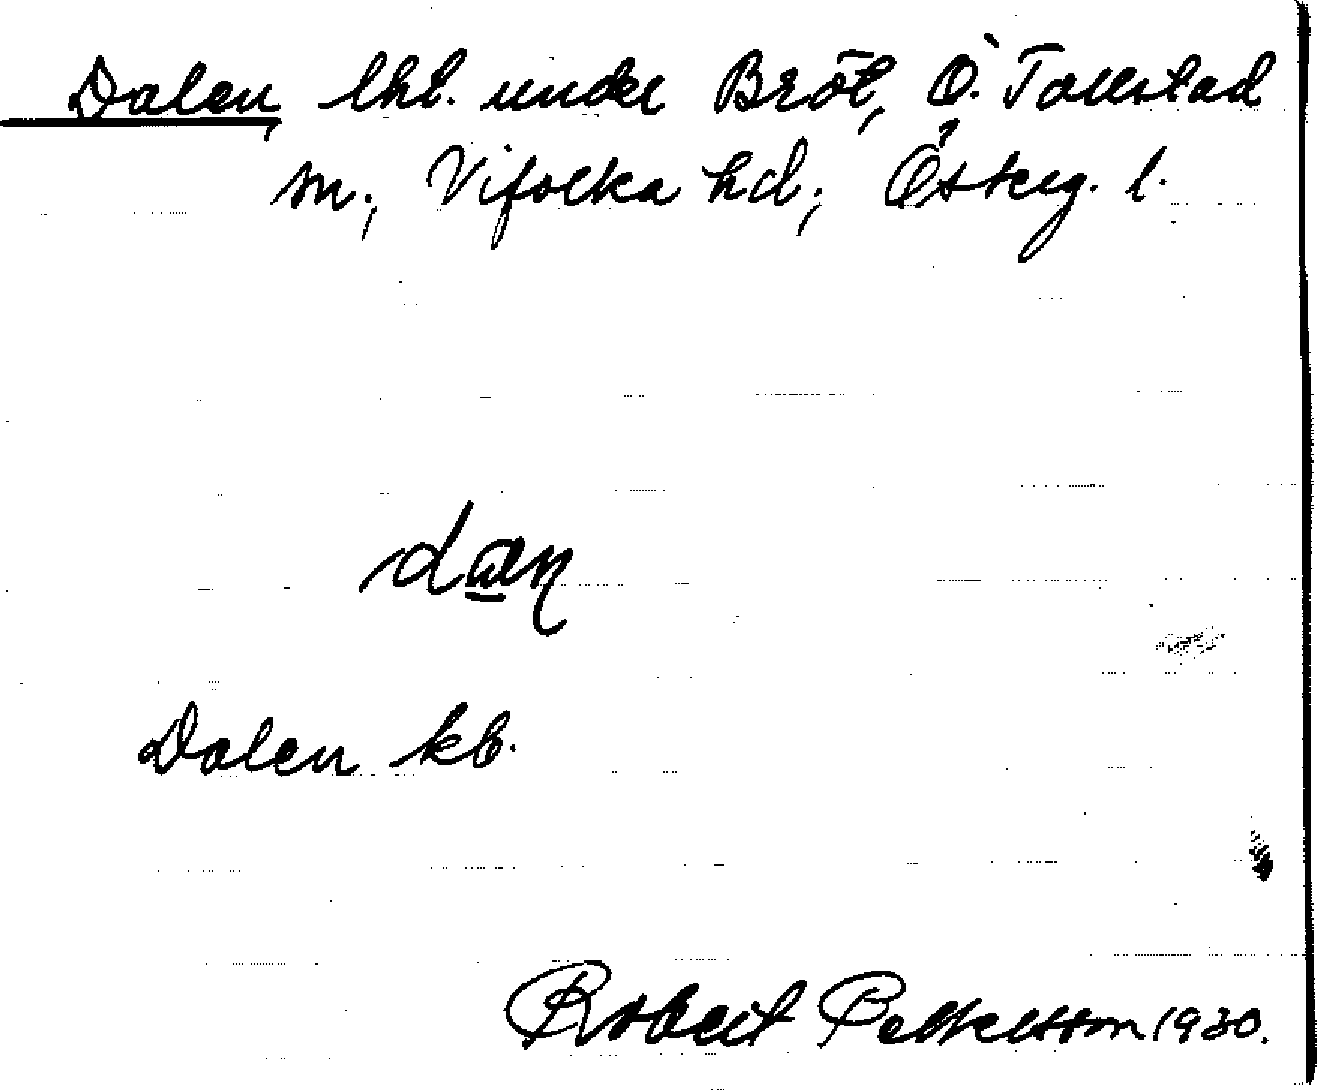 Dalen, lht. under Bröt, Ö. Tollstad
sn., Vifolka hd., Österg. l.
Dalen kb.
Robert Pettersson 1930.